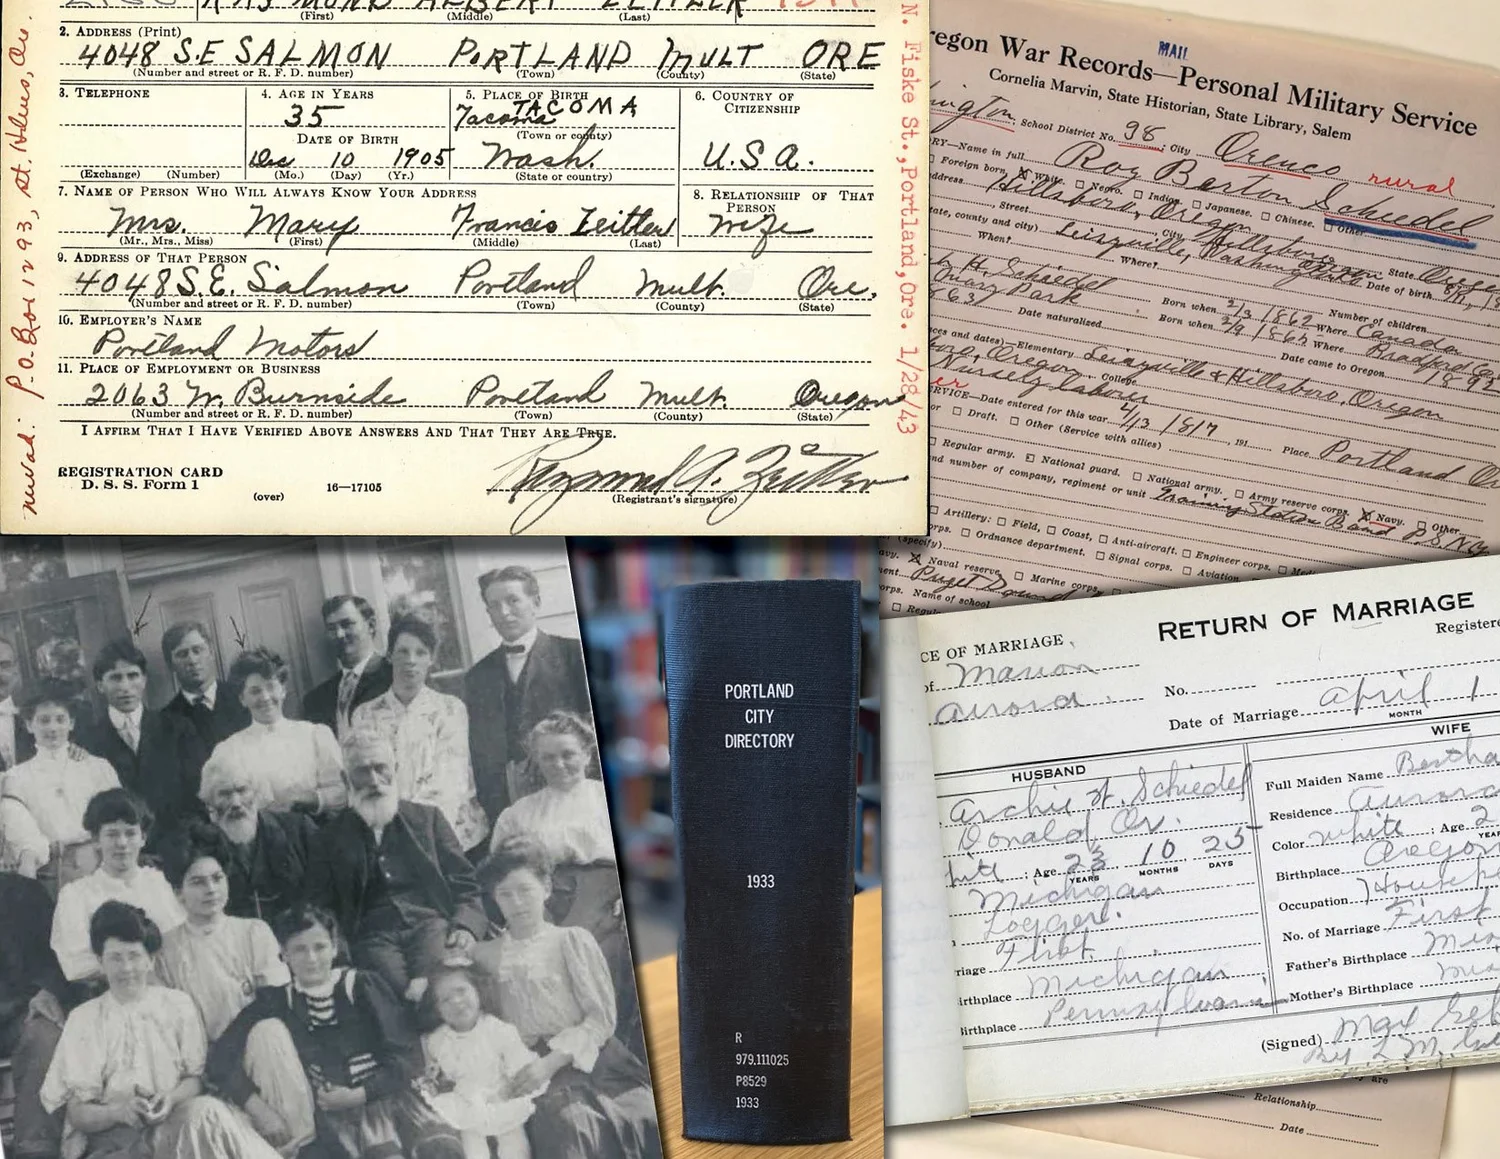 RAYMOND ALBERT ZEITLER
(First) (Middle) (Last)
2. ADDRESS (Print)
4048 S.E SALMON PORTLAND MULT ORE
(Number and street or R. F. D. number) (Town) (County) (State)
3. TELEPHONE
4. AGE IN YEARS
35
DATE OF BIRTH
Dec 10 1905
(Exchange) (Number) (Mo.) (Day) (Yr.)
5. PLACE OF BIRTH
TACOMA
Tacoma
(Town or county)
Wash.
(State or country)
6. COUNTRY OF
CITIZENSHIP
U.S.A.
7. NAME OF PERSON WHO WILL ALWAYS KNOW YOUR ADDRESS
Mrs. Mary Francis Zeitler
(Mr., Mrs., Miss) (First) (Middle) (Last)
8. RELATIONSHIP OF THAT
PERSON
Wife
9. ADDRESS OF THAT PERSON
4048 S.E. Salmon Portland Mult. Ore.
(Number and street or R. F. D. number) (Town) (County) (State)
10. EMPLOYER'S NAME
Portland Motors
11. PLACE OF EMPLOYMENT OR BUSINESS
2063 W. Burnside Portland Mult. Oregon
(Number and street or R. F. D. number) (Town) (County) (State)
I AFFIRM THAT I HAVE VERIFIED ABOVE ANSWERS AND THAT THEY ARE TRUE.
REGISTRATION CARD
D. S. S. Form 1
(over)
16—17105
Raymond A. Zeitler
(Registrant's signature)
P.O. Box 1293, St. Helens, Ore
N. Fiske St., Portland, Ore. 1/28/43
MAIL
Oregon War Records—Personal Military Service
Cornelia Marvin, State Historian, State Library, Salem
School District No. 98 City Orenco rural
Name in full Roy Barton Schiedel
Foreign born, White, Negro, Indian, Japanese, Chinese, Other
Hillsboro, Oregon
Street City Hillsboro State Oregon
state, county and city) Leisyville, Washington Date of birth
When? Where?
H. Schiedel Born when 2/3/1862 Where Canada
Number of children
Mary Park Born when 2/9/1865 Where Bradford
Date naturalized Date came to Oregon 1892
Elementary Leisyville & Hillsboro, Oregon
College
Nursery laborer
Date entered for this war 4/13/1817, 191 Place Portland
Draft. Other (Service with allies)
Regular army. National guard. National army. Army reserve corps. Navy. Other
number of company, regiment or unit Training Station Band P.S.N.Y.
Artillery: Field, Coast, Anti-aircraft. Engineer corps.
Ordnance department. Signal corps. Aviation
(specify)
Naval reserve Marine corps
Puget Sound
Name of school
PORTLAND
CITY
DIRECTORY
1933
R
979.111025
P8529
1933
RETURN OF MARRIAGE
CE OF MARRIAGE Registered
of Marion No.
Aurora Date of Marriage April 1
MONTH
HUSBAND
Archie H. Schiedel
Donald, Or.
Age 23 10 25
YEARS MONTHS DAYS
Michigan
Logger.
First
Birthplace Michigan
Birthplace Pennsylvania
WIFE
Full Maiden Name Bertha
Residence Aurora
Color White Age 2
Birthplace Oregon
Occupation Housek
No. of Marriage First
Father's Birthplace
Mother's Birthplace
(Signed) Max
Relationship
Date